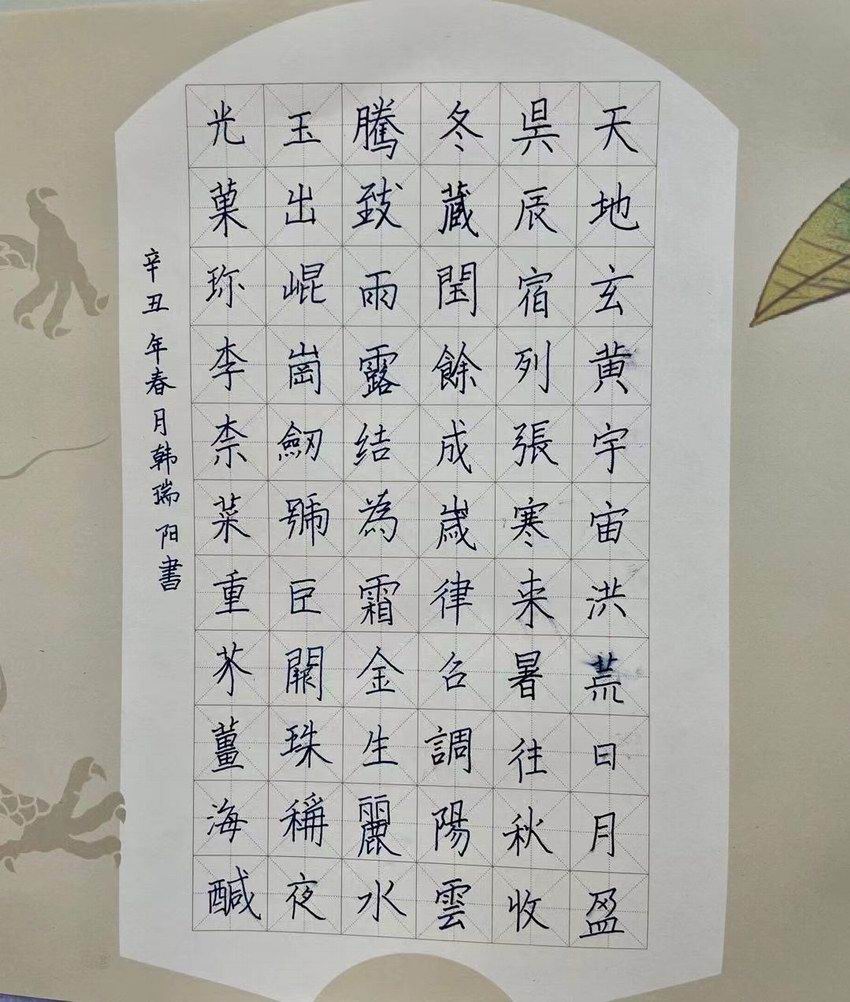 天地玄黄宇宙洪荒日月盈
昃辰宿列張寒来暑往秋收
冬蔵閏餘成歳律召調陽雲
騰致雨露结為霜金生麗水
玉出崐崗劒號巨闕珠稱夜
光菓珎李柰菜重芥薑海醎
辛丑年春月韩瑞阳書